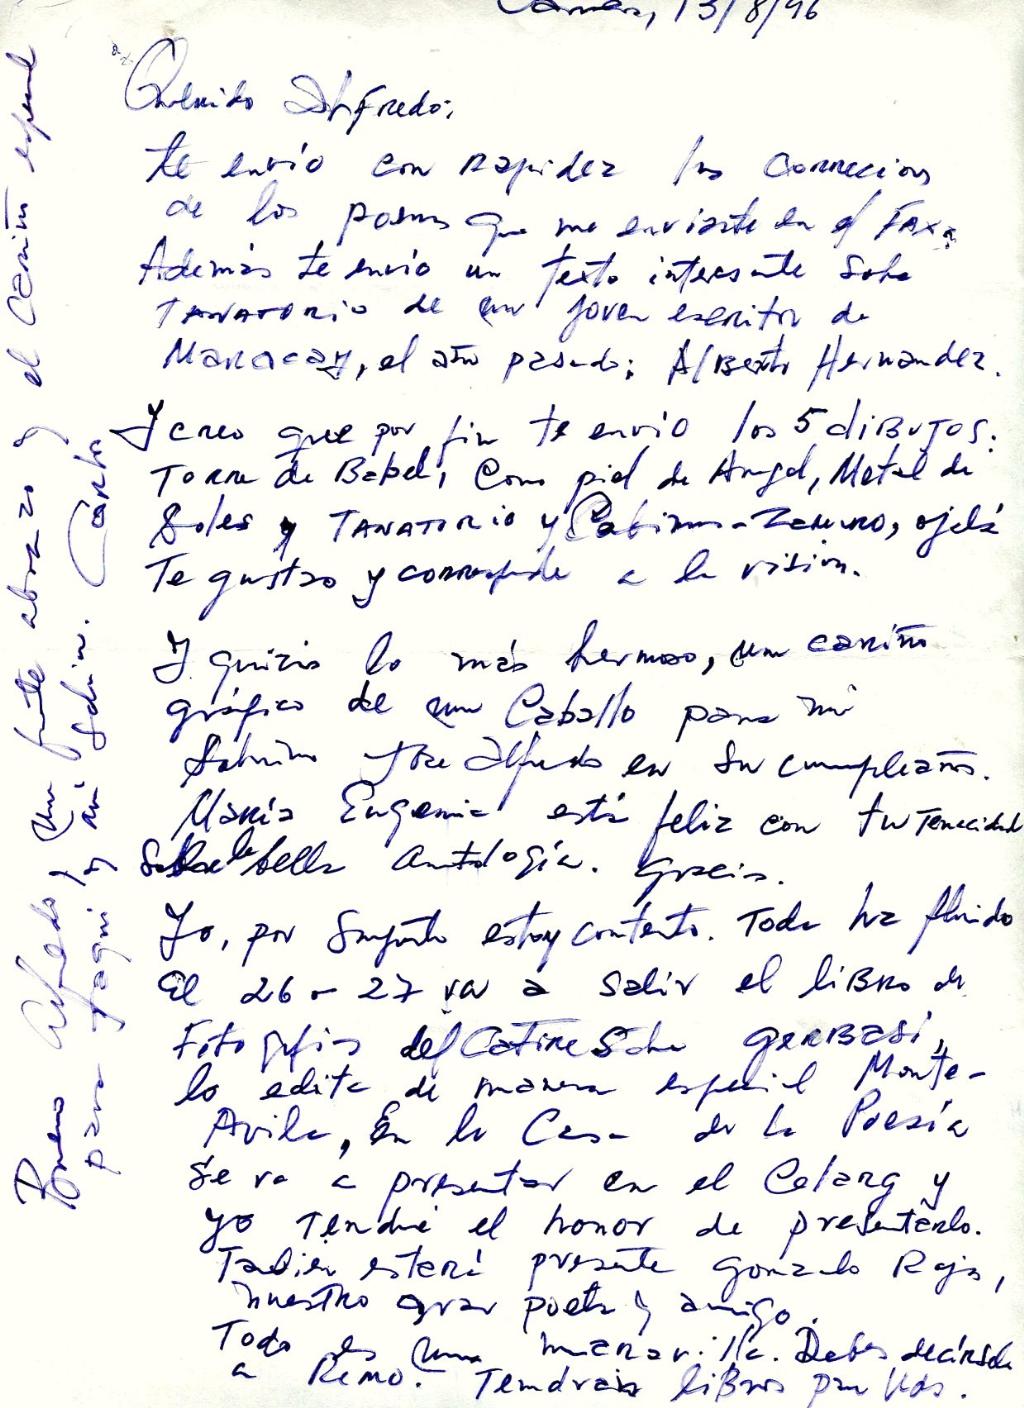 Caracas, 13/8/96
Querido Alfredo:
te envío con rapidez las correcciones
de los poemas que me enviaste en el FAX.
Además te envío un texto interesante sobre
TANATORIO de un joven escritor de
Maracay, el año pasado; Alberto Hernández.
Y creo que por fin te envío los 5 diBUJOS:
Torre de Babel, Como piel de Angel, Metal de
Soles y TANATORIO y Cabimas-Zamuro, ojalá
Te gustso y corresponde a la visión.
Y quizás lo más hermoso, un cariño
gráfico de un Caballo para mi
Sobrino José Alfredo en su cumpleaños.
María Eugenia está feliz con tu tenacidad
Sobre la bella Antología. Gracias.
Yo, por supuesto estoy contento. Todo ha fluido
El 26 o 27 va a salir el libro de
Fotografías del Catire sobre GERBASI,
lo edita de manera especial Monte-
Avila, En la Casa de la Poesía
se va a presentar en el Celarg y
yo Tendré el honor de presentarlo.
Tabién estará presente Gonzalo Rojas,
nuestro gran poeta y amigo.
Todo es una maravilla. Debes decírselo
a Remo. Tendrás libros para Uds.
Bueno Alfredo, Un fuerte abrazo y el Cariño especial
para Jaqui y mi Sobrino. Carlos